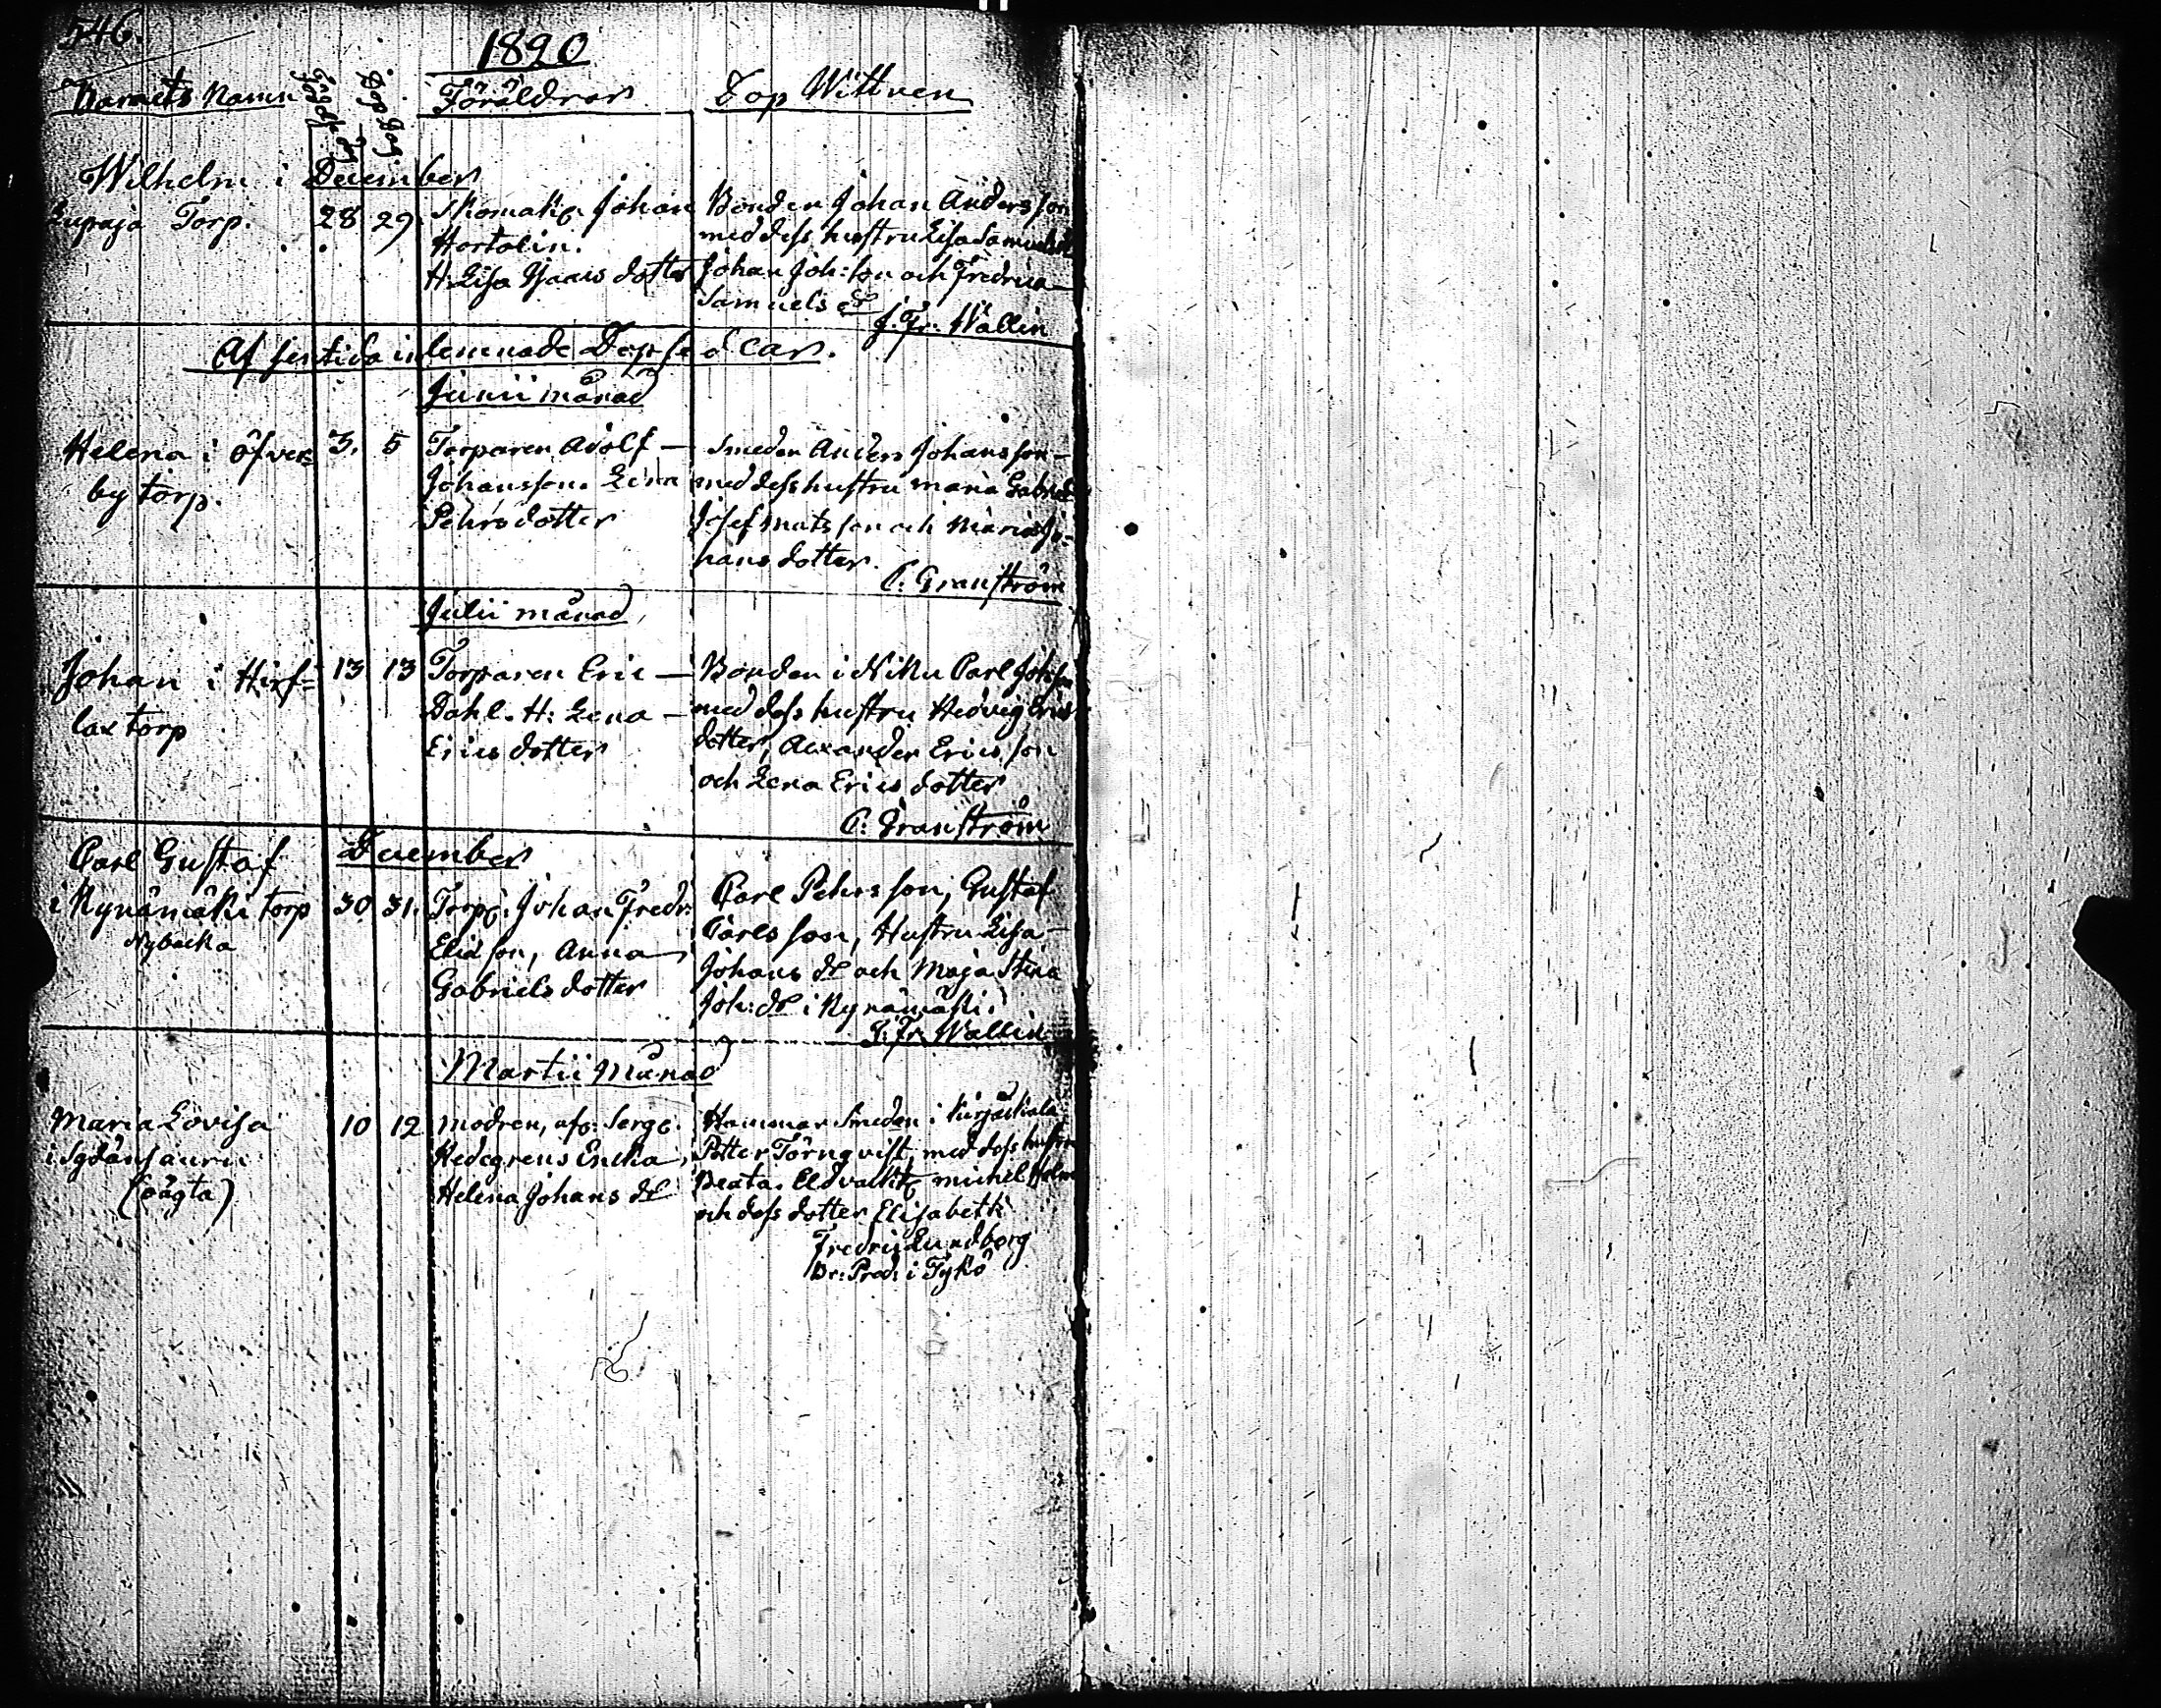 546.
1820
Barnets Namn Födelse Dag Dop Dag Föräldrar Dop Wittnen
Wilhelm i December
Torp. 28 29. Skomak. Johan Bonden Johan Andersson
Hortolin. med dess hustru Lisa Samuelsd
H: Lisa Isaacs dotter Johan Joh:son och Fredrica
Samuels dr
J. Fr. Wallin
Af sentida inlemnade Dopsedlar.
Junii månad
Helena i Öfver= 3. 5 Torparen Adolf — Smeden Anders Johansson —
by torp. Johansson. Lena med dess hustru Maria Gabriels
Pehrsdotter Josef Matsson och Maria Jo=
hansdotter.
C: Granström
Julii månad
Johan i Hirs= 13 13 Torparen Eric — Bonden i Niku Carl Johsson
lax torp Dahl. H: Lena — med dess hustru Hedvig Erics
Erics dotter dotter, Alexander Ericsson
och Lena Erics dotter
C: Granström
Carl Gustaf December
i Kynämäki torp 30 31. Torp: Johan Fredr: Carl Pehrsson, Gustaf
Nybacka Eliasson, Anna Carlsson, Hustru Lisa —
Gabriels dotter Johans dr och Maja Stina
Joh: dr i Kynämäki.
J: Fr. Wallin
Martii Månad
Maria Lovisa 10 12 modren, afs: Serg: Hammar Smeden i Kirjackala
i Sydänsauri Hedegrens Encka, Petter Törnqvist, med dess hustru
(oägta) Helena Johans dr Beata. Eldvakt: Michel Holm
och dess dotter Elisabeth
Fredric Lundberg
Br: Pred: i Tykö